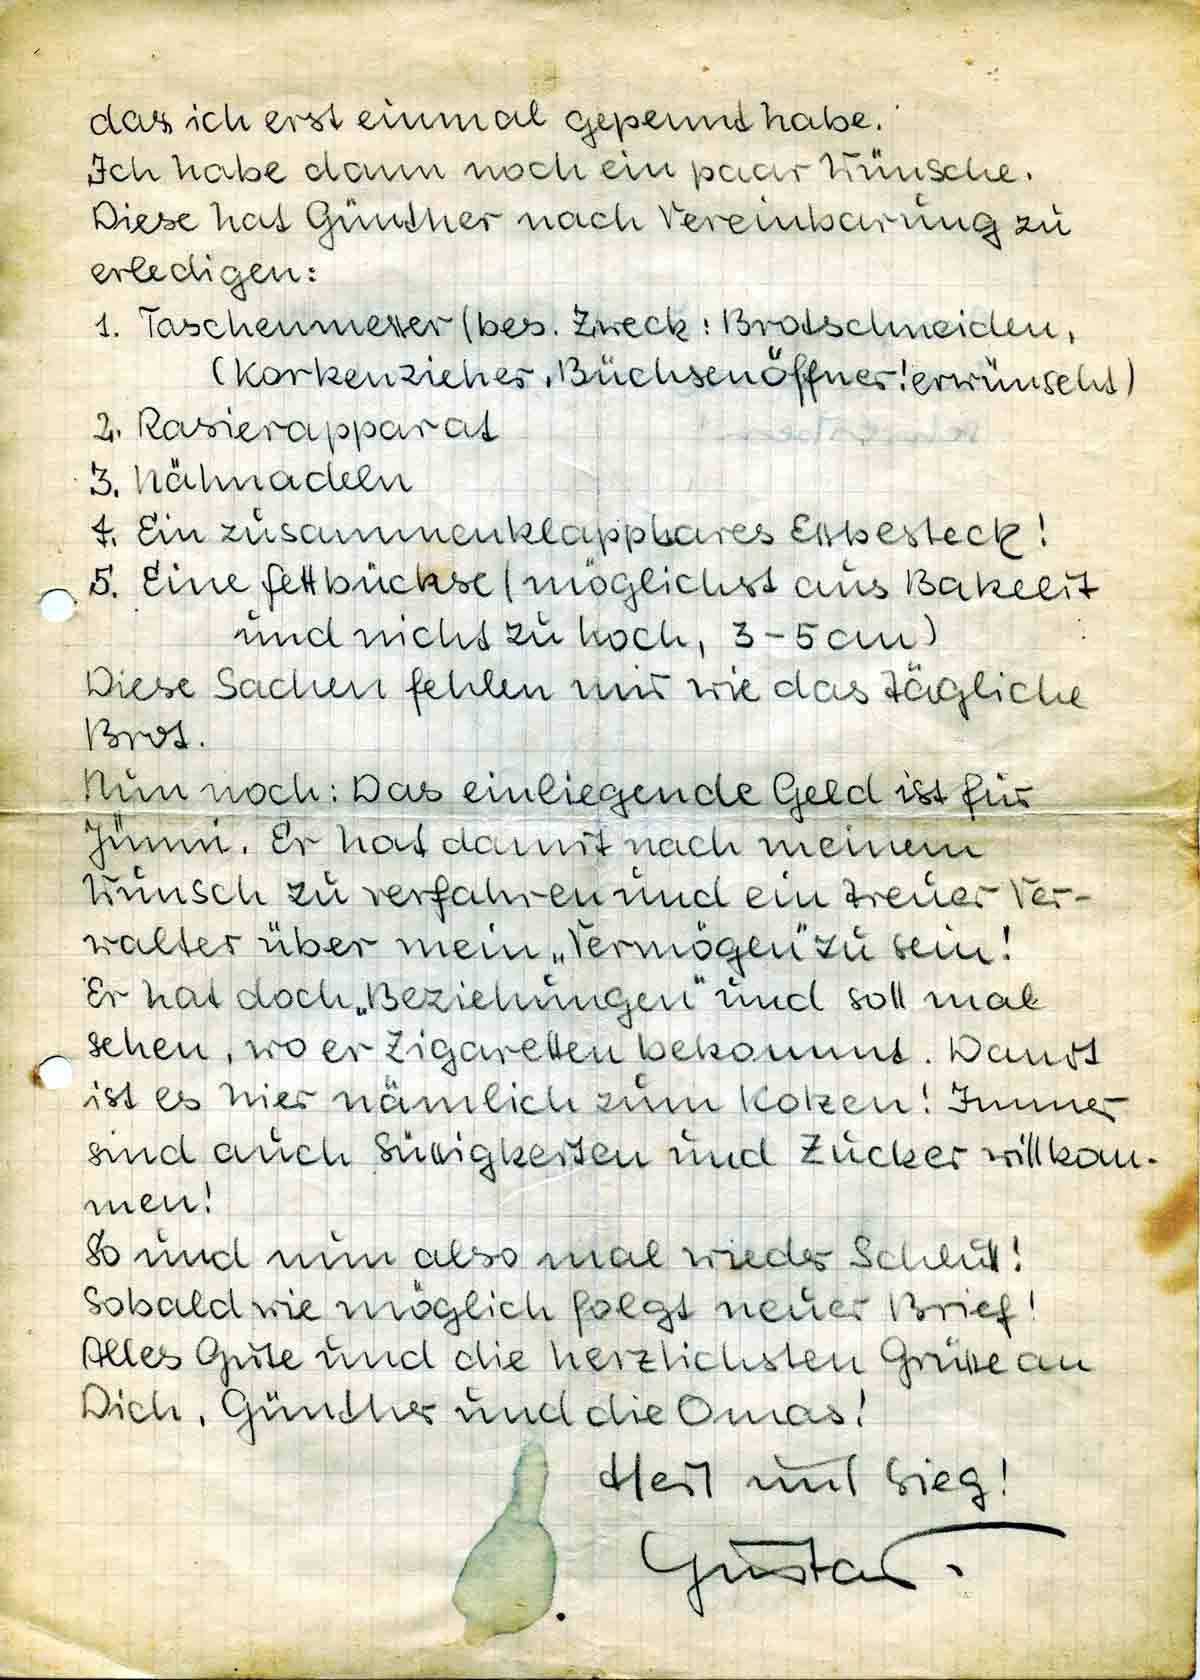 das ich erst einmal gepennt habe.
Ich habe dann noch ein paar Wünsche.
Diese hat Günther nach Vereinbarung zu
erledigen:
1. Taschenmesser (bes. Zweck: Brotschneiden,
(Korkenzieher, Büchsenöffner! erwünscht)
2. Rasierapparat
3. Nähnadeln
4. Ein zusammenklappbares Essbesteck!
5. Eine Fettbückse (möglichst aus Bakelit
und nicht zu hoch, 3-5cm)
Diese Sachen fehlen mir wie das tägliche
Brot.
Nun noch: Das einliegende Geld ist für
Jümmi. Er hat damit nach meinem
Wunsch zu verfahren und ein treuer Ver-
walter über mein „Vermögen" zu sein!
Er hat doch „Beziehungen" und soll mal
sehen, wo er Zigaretten bekommt. Damit
ist es hier nämlich zum Kotzen! Immer
sind auch Süssigkeiten und Zucker willkom-
men!
So und nun also mal wieder Schluß!
Sobald wie möglich folgt neuer Brief!
Alles Gute und die herzlichsten Grüsse an
Dich, Günther und die Omas!
Heil und Sieg!
Gustav.